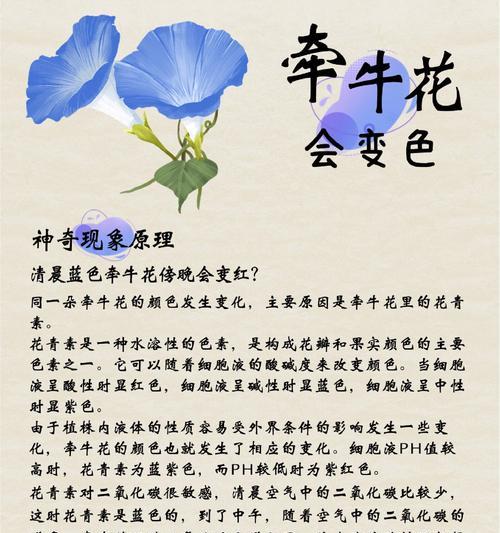 牵牛花
会变色
神奇现象原理
清晨蓝色牵牛花傍晚会变红?
同一朵牵牛花的颜色发生变化,主要原因是牵牛花里的花青
素。
花青素是一种水溶性的色素,是构成花瓣和果实颜色的主要
色素之一。它可以随着细胞液的酸碱度来改变颜色。当细胞
液呈酸性时显红色,细胞液呈碱性时显蓝色,细胞液呈中性
时显紫色。
由于植株内液体的性质容易受外界条件的影响发生一些变
化,牵牛花的颜色也就发生了相应的变化。细胞液PH值较
高时,花青素为蓝紫色,而PH较低时为紫红色。
花青素对二氧化碳很敏感,清晨空气中的二氧化碳比较少,
这时花青素是蓝色的,到了中午,随着空气中的二氧化碳的